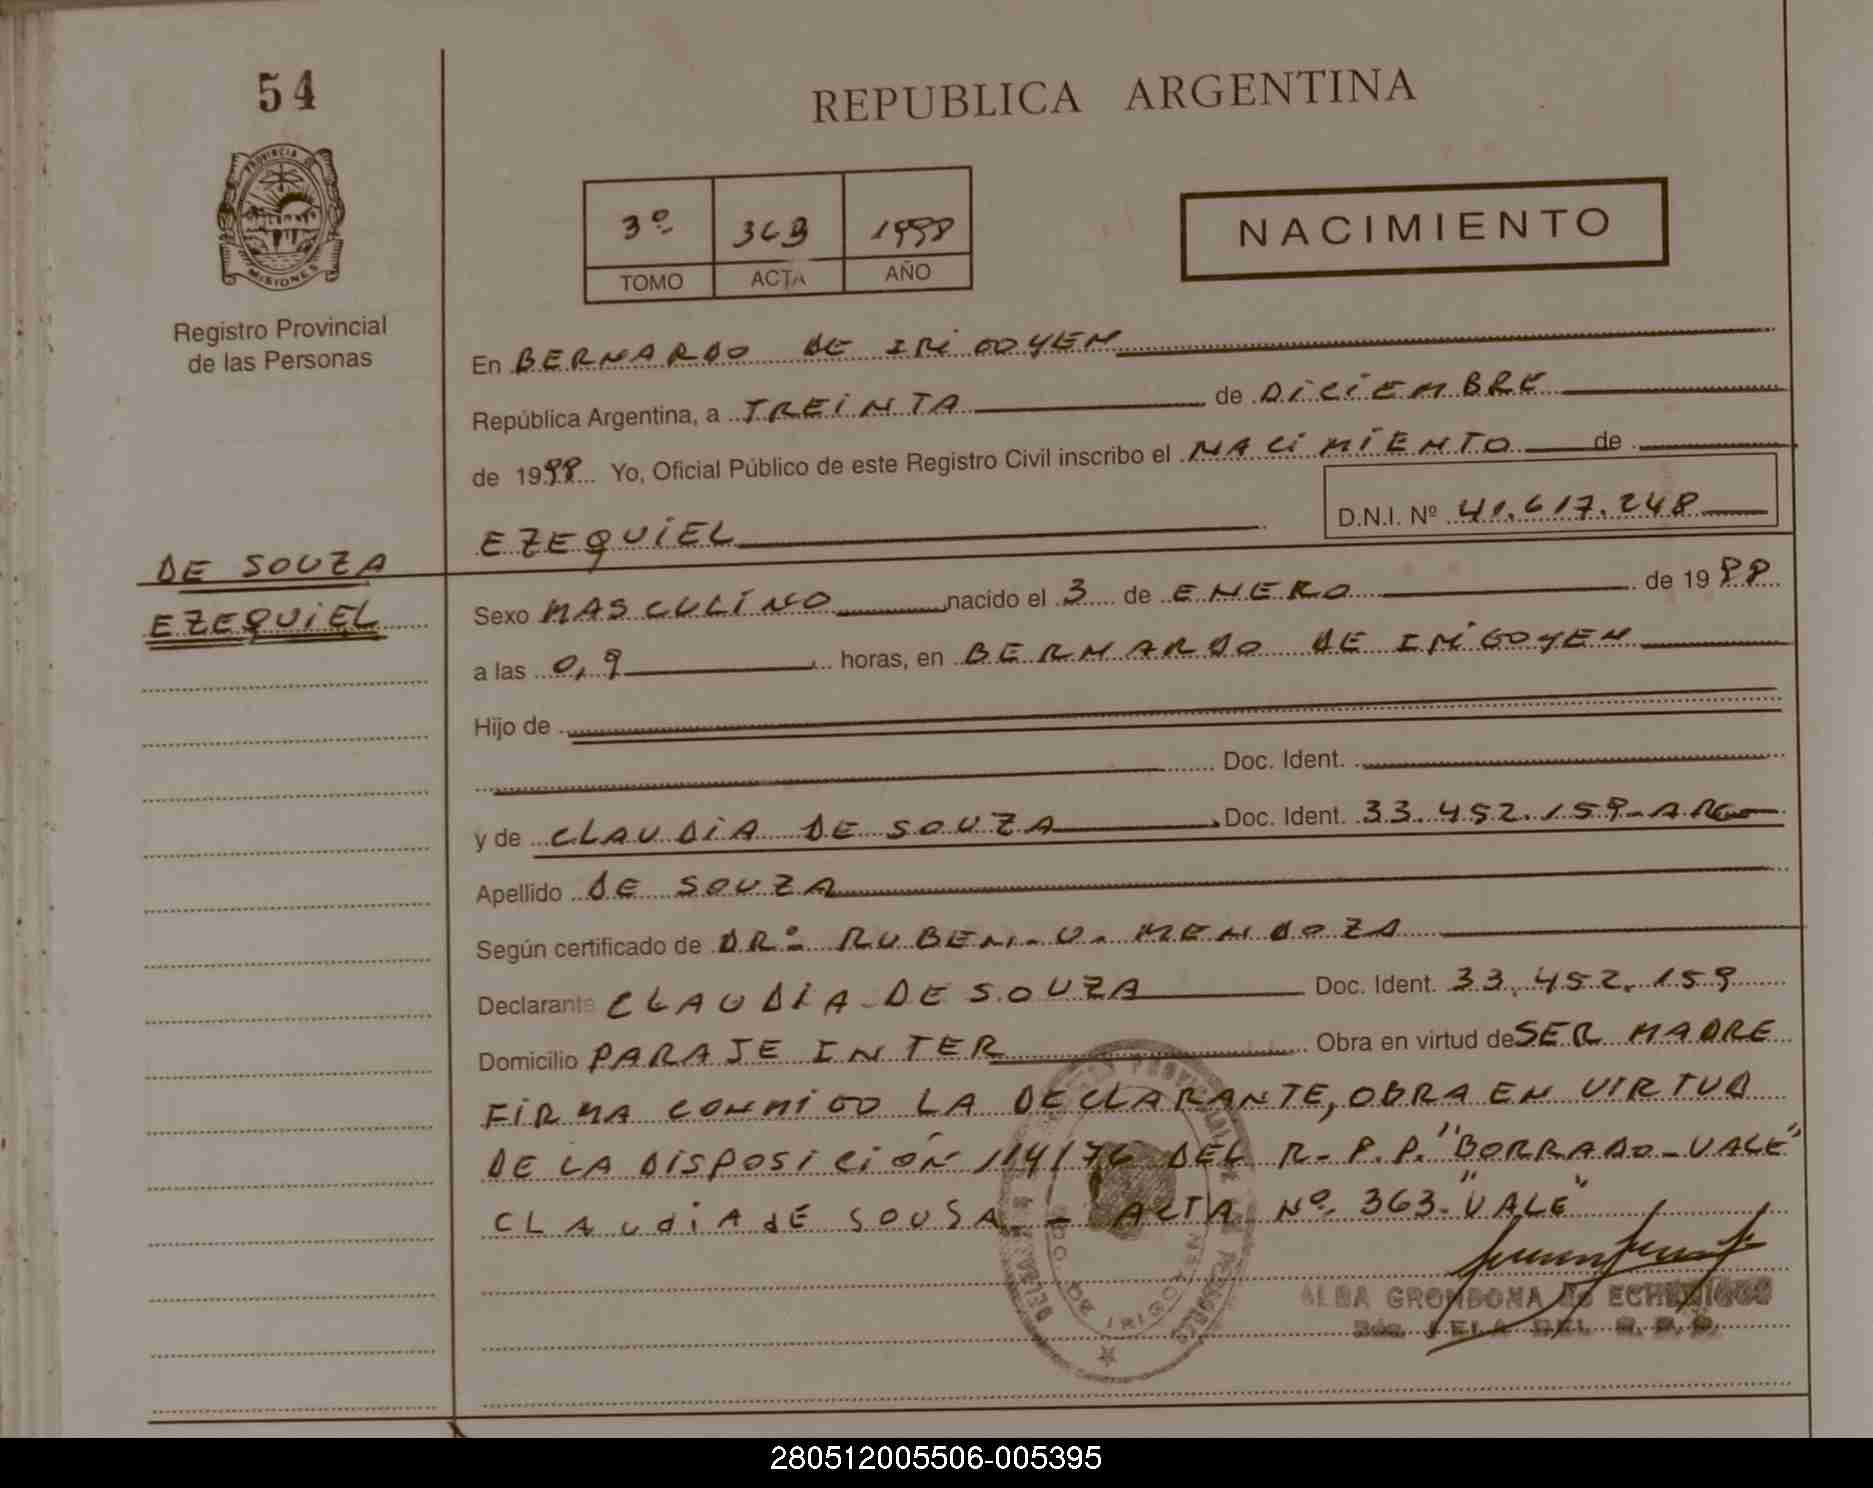 54
REPUBLICA ARGENTINA
PROVINCIA DE
MISIONES
Registro Provincial
de las Personas
3º 363 1998
TOMO ACTA AÑO
NACIMIENTO
En BERNARDO DE IRIGOYEN
República Argentina, a TREINTA de DICIEMBRE
de 1998 Yo, Oficial Público de este Registro Civil inscribo el NACIMIENTO de
EZEQUIEL D.N.I. Nº 41.617.248
DE SOUZA
EZEQUIEL
Sexo MASCULINO nacido el 3 de ENERO de 1998
a las 0,9 horas, en BERNARDO DE IRIGOYEN
Hijo de
Doc. Ident.
y de CLAUDIA DE SOUZA Doc. Ident. 33.452.159-ARG
Apellido DE SOUZA
Según certificado de DRº RUBEN. O. MENDOZA
Declarante CLAUDIA DE SOUZA Doc. Ident. 33.452.159
Domicilio PARAJE INTER Obra en virtud de SER MADRE
FIRMA CONMIGO LA DECLARANTE, OBRA EN VIRTUD
DE LA DISPOSICIÓN 114/76 DEL R.P.P. "BORRADO-VALE"
CLAUDIA dE SOUSA - ACTA Nº 363-"VALE"
ALBA GRONDONA DE
DEL R.P.P.
280512005506-005395